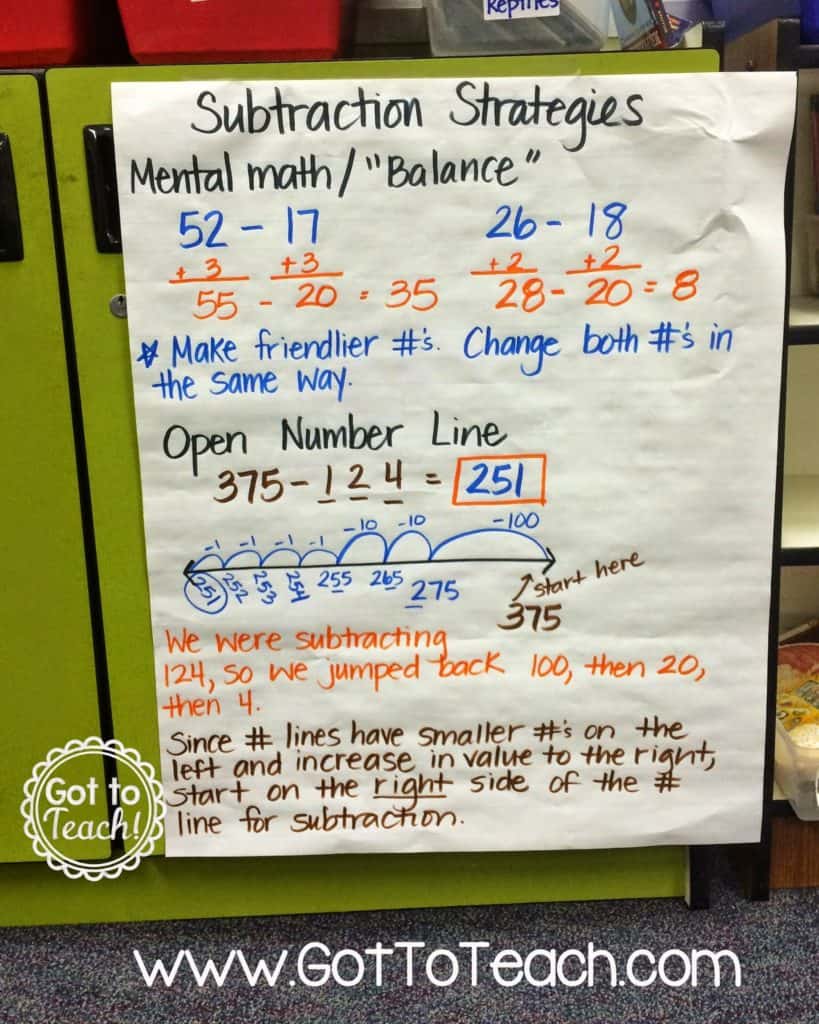 Reptiles
Subtraction Strategies
Mental math / "Balance"
52 - 17
+ 3 +3
55 - 20 = 35
26 - 18
+2 +2
28 - 20 = 8
* Make friendlier #'s. Change both #'s in
the same way.
Open Number Line
375 - 124 = 251
-1 -1 -1 -1 -10 -10 -100
251 252 253 254 255 265 275
start here
375
We were subtracting
124, so we jumped back 100, then 20,
then 4.
Since # lines have smaller #'s on the
left and increase in value to the right,
start on the right side of the #
line for subtraction.
Got to
Teach!
www.GotToTeach.com